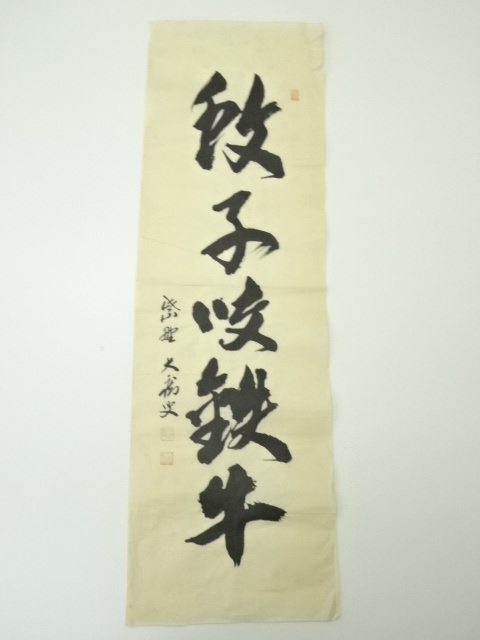 蚊子咬鉄牛
紫野 大